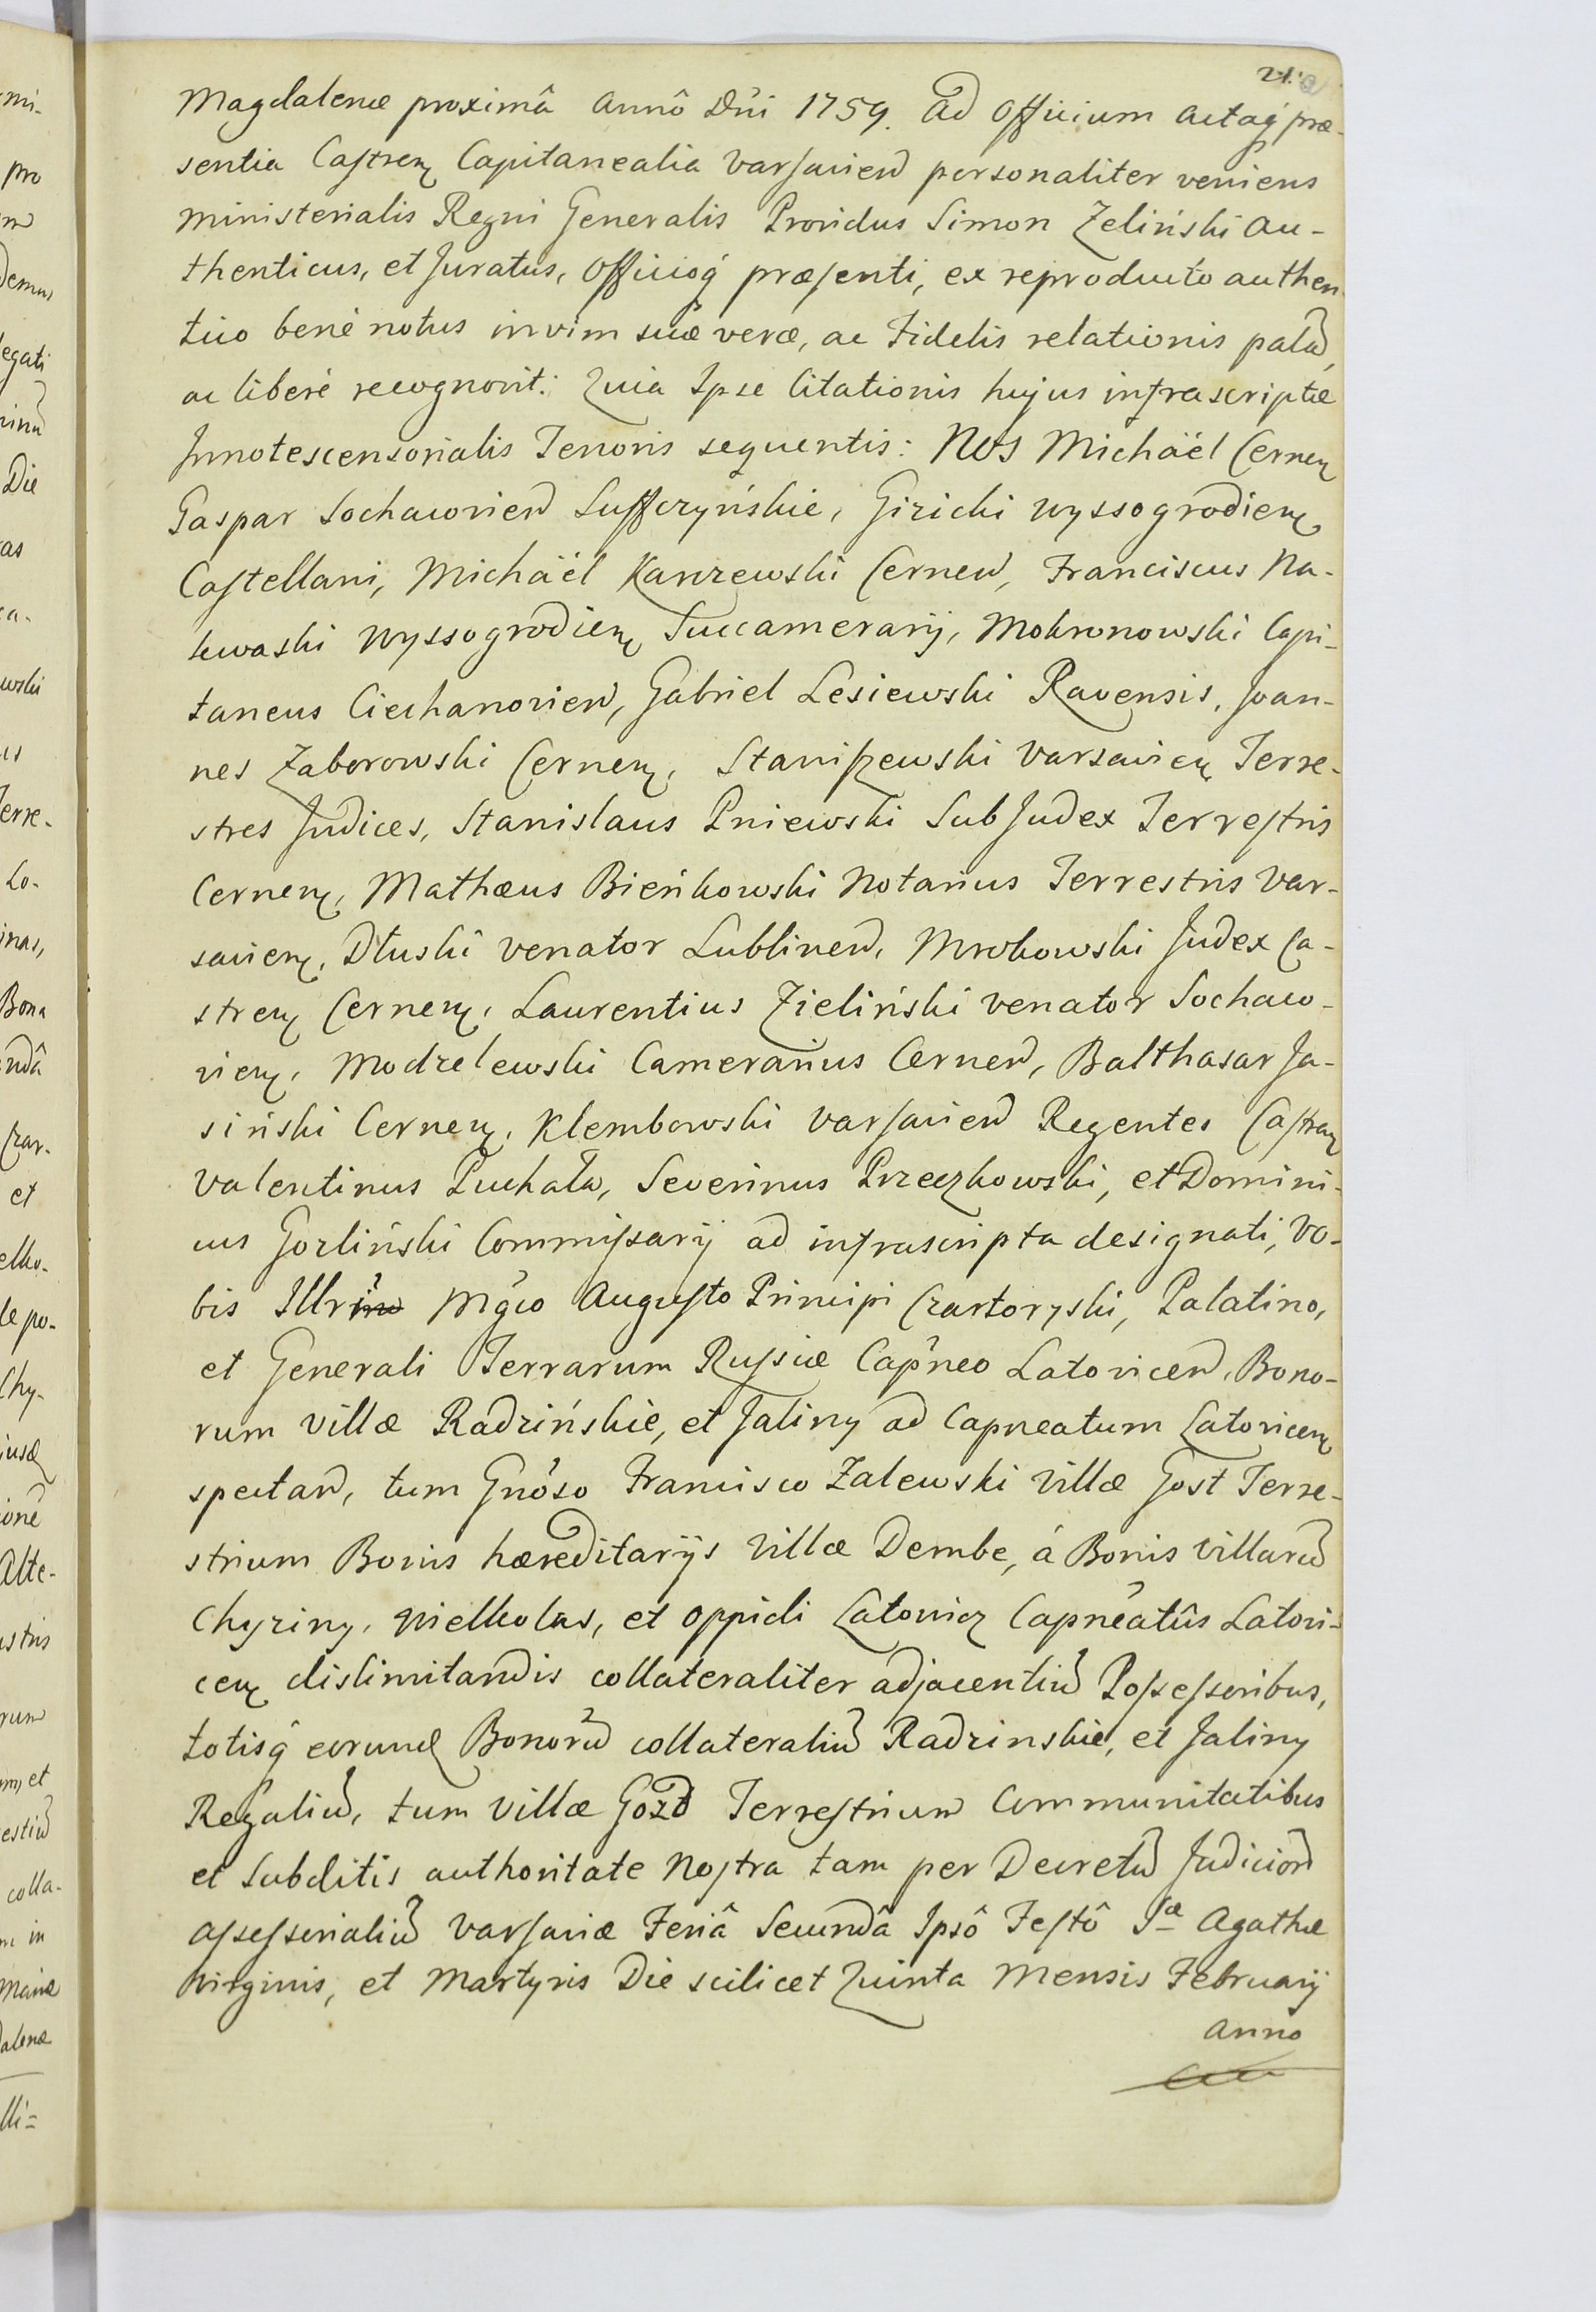 21.
Magdalenæ proximâ Annô Dni 1759. Ad Officium Actaq præ-
sentia Castren Capitanealia Varsavien personaliter veniens
Ministerialis Regni Generalis Providus Simon Zeliński Au-
thenticus, et Juratus, Officioq præsenti, ex reproducto authen
tico benè notus invim suæ veræ, ac Fidelis relationis palam,
ac liberè recognovit: Quia Ipse Citationis hujus infrascriptæ
Innotescensorialis Tenoris sequentis: Nos Michäel Cernen
Gaspar Sochacovien Suffczyńskie, Gizicki Wyssogrodien
Castellani, Michäel Karczewski Cernen, Franciscus Na-
kwaski Wyssogrodien Succamerarij, Mokronowski Capi-
taneus Ciechanovien, Gabriel Lesiewski Ravensis, Joan-
nes Zaborowski Cernen, Staniszewski Varsavien Terre-
stres Judices, Stanislaus Pniewski SubJudex Terrestris
Cernen, Mathæus Bieńkowski Notarius Terrestris Var-
savien, Dłuski Venator Lublinen, Mrokowski Judex Ca-
stren Cernen, Laurentius Zieliński Venator Sochaco-
vien, Modzelewski Camerarius Cernen, Balthasar Ja-
siński Cernen, Klembowski Varsavien Regentes Castren
Valentinus Puchała, Severinus Przeczkowski, et Domini-
cus Gorliński Commissarij ad infrascripta designati, Vo-
bis Illri Mgco Augusto Principi Czartoryski, Palatino,
et Generali Terrarum Russiæ Capneo Latovicen, Bono-
rum villæ Radzińskie, et Jaliny ad Capneatum Latovicen
spectan, tum Gnoso Francisco Zalewski Villæ Gost Terre-
strium Bonis hæreditarijs Villæ Dembe, á Bonis Villarum
Chyziny, Wielkolas, et Oppidi Latowicz Capneatûs Latovi-
cen dislimitandis collateraliter adjacentium Possessoribus,
totisq eorund Bonorum collateralium Radzinskie, et Jaliny
Regalium, tum Villæ Gozd Terrestrium Communitatibus
et Subditis authoritate Nostra tam per Decretum Judicior
Assessorialium Varsaviæ Feriâ Secundâ Ipsô Festô Sæ Agathæ
Virginis, et Martyris Die scilicet Quinta Mensis Februarij
Anno